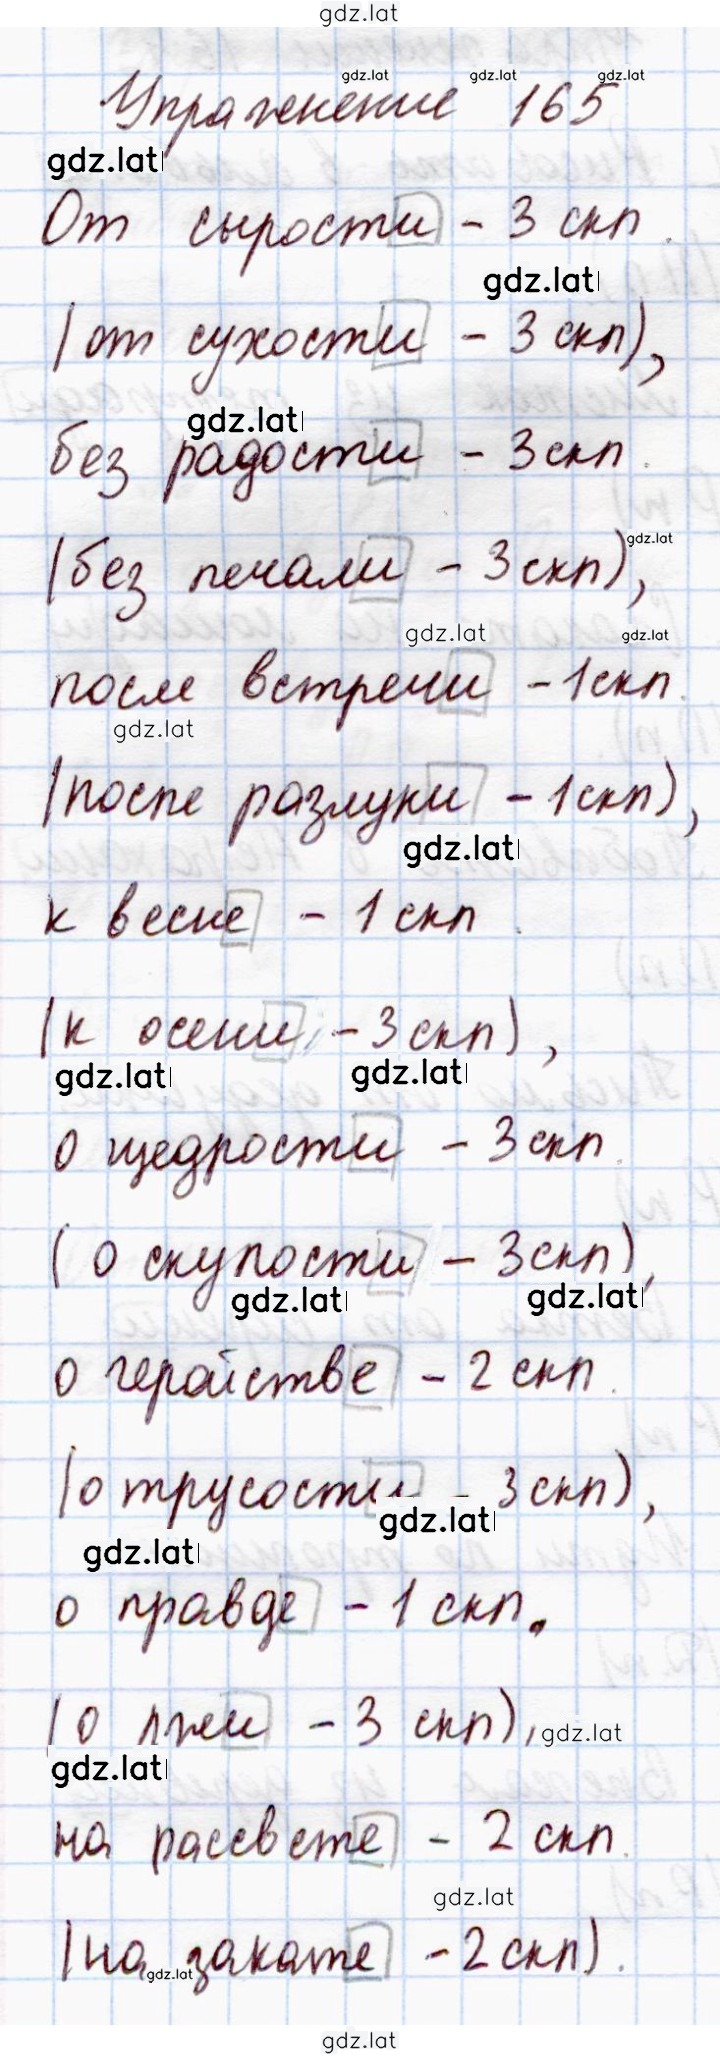 gdz.lat
gdz.lat gdz.lat gdz.lat
Упражнение 165
gdz.lat
От сырости - 3 скл.
gdz.lat
(от сухости - 3 скл),
gdz.lat
без радости - 3 скл.
gdz.lat
(без печали - 3 скл),
gdz.lat gdz.lat
после встречи - 1 скл.
gdz.lat
(после разлуки - 1 скл),
gdz.lat
к весне - 1 скл.
(к осени - 3 скл),
gdz.lat gdz.lat
о щедрости - 3 скл.
(о скупости - 3 скл),
gdz.lat gdz.lat
о геройстве - 2 скл.
(о трусости - 3 скл),
gdz.lat
gdz.lat
о правде - 1 скл.
(о лжи - 3 скл), gdz.lat
gdz.lat
на рассвете - 2 скл.
gdz.lat
(на закате - 2 скл).
gdz.lat
gdz.lat